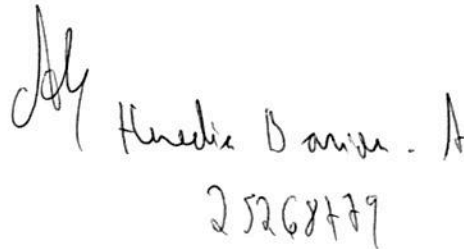 Heredia Darien. A
25268779